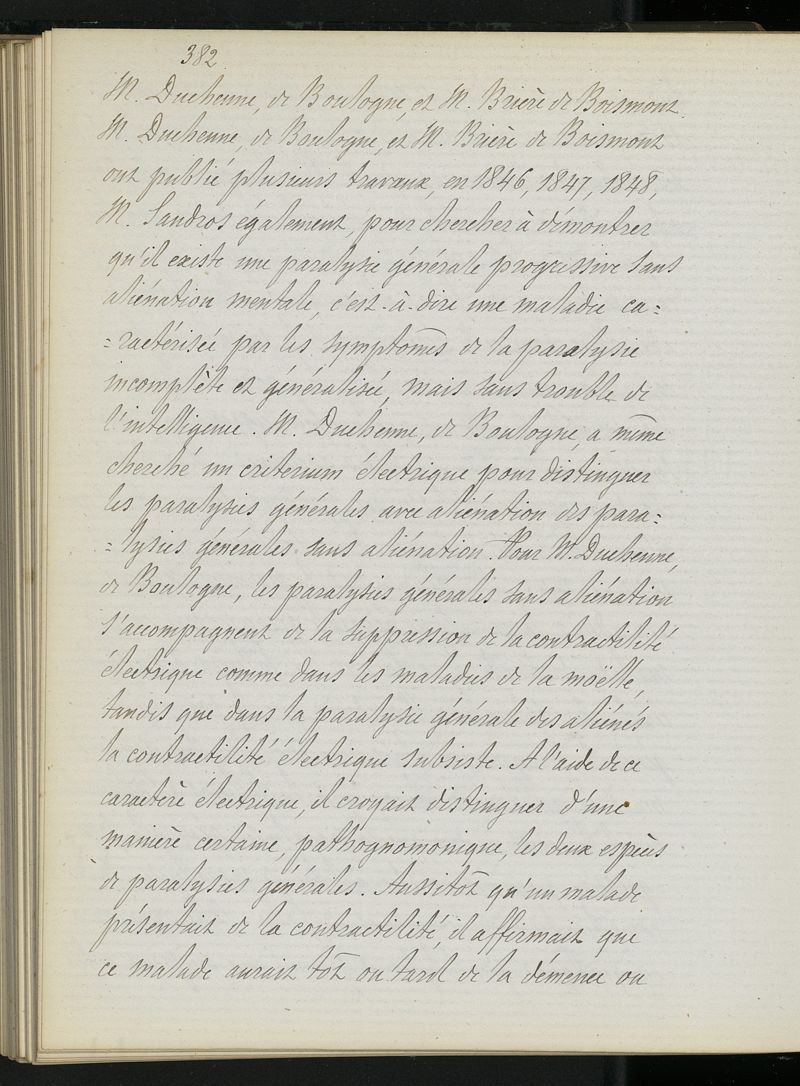 382
M. Duchenne, de Boulogne, et M. Brière de Boismont
M. Duchenne, de Boulogne, et M. Brière de Boismont
ont publié plusieurs travaux, en 1846, 1847, 1848,
M. Sandros également, pour chercher à démontrer
qu'il existe une paralysie générale progressive sans
aliénation mentale, c'est-à-dire une maladie ca=
=ractérisée par les symptômes de la paralysie
incomplète et généralisée, mais sans trouble de
l'intelligence. M. Duchenne, de Boulogne, a même
cherché un criterium électrique pour distinguer
les paralysies générales avec aliénation des para=
=lysies générales sans aliénation. Pour M. Duchenne,
de Boulogne, les paralysies générales sans aliénation
s'accompagnent de la suppression de la contractilité
électrique comme dans les maladies de la moëlle,
tandis que dans la paralysie générale des aliénés
la contractilité électrique subsiste. A l'aide de ce
caractère électrique, il croyait distinguer d'une
manière certaine, pathognomonique, les deux espèces
de paralysies générales. Aussitôt qu'un malade
présentait de la contractilité, il affirmait que
ce malade aurait tôt ou tard de la démence ou